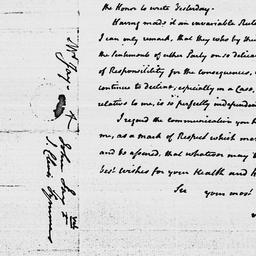 the Honor to write Yesterday.—
Having made it an invariable Rule
I can only remark, that they who by the
the Sentiments of either Party on so delica
of Responsibility for the consequences,
continue to decline, especially in a Case,
relative to me, is so perfectly independen
I regard the communication you h
me, as a mark of Respect which mer
and be assured, that whatever may b
best wishes for your Health and H
your most
Mr Jay.
John Jay